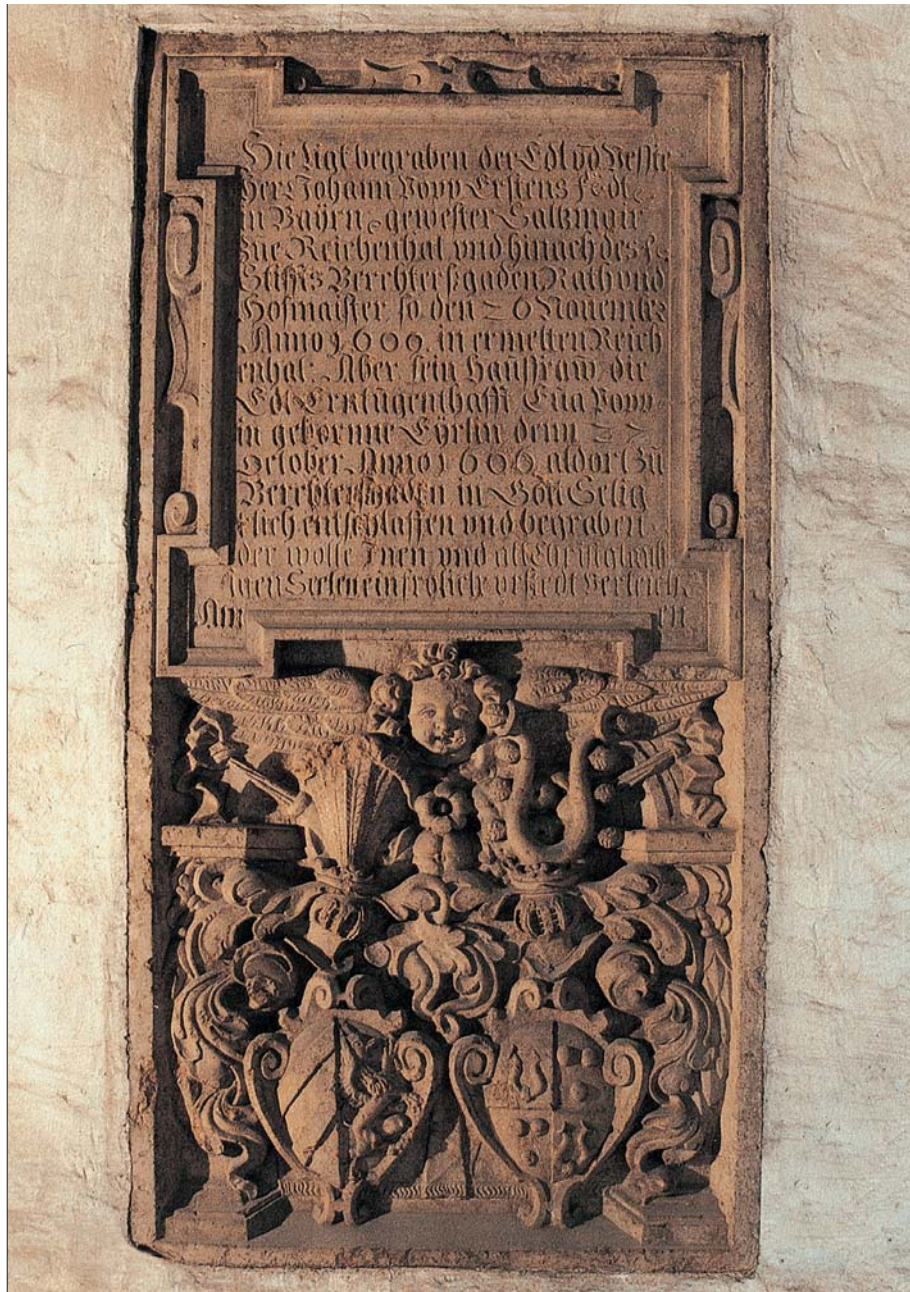 Hie ligt begraben der Edl vñd Vesste
Her Johann Popp Erstens f: dl:
in Baÿrn gewester Saltzmair
zue Reichenhal vnd hinach des f:
Stiffts Berchtersgaden Rath vnd
Hofmaister so den 26 Nouember
Anno 1609 in ermelten Reich
enhal. Aber sein Haußfraw die
Edl Ern tugenthafft Eua Popp
in geborne denn 27
October Anno 1606 aldort zů
Berchtersgaden in Gott Selig
klich entschlaffen vnd begraben.
der wolle Inen vnd alle Christglaub
igen Seelen ein froliche vrstedt Verleich
Am en